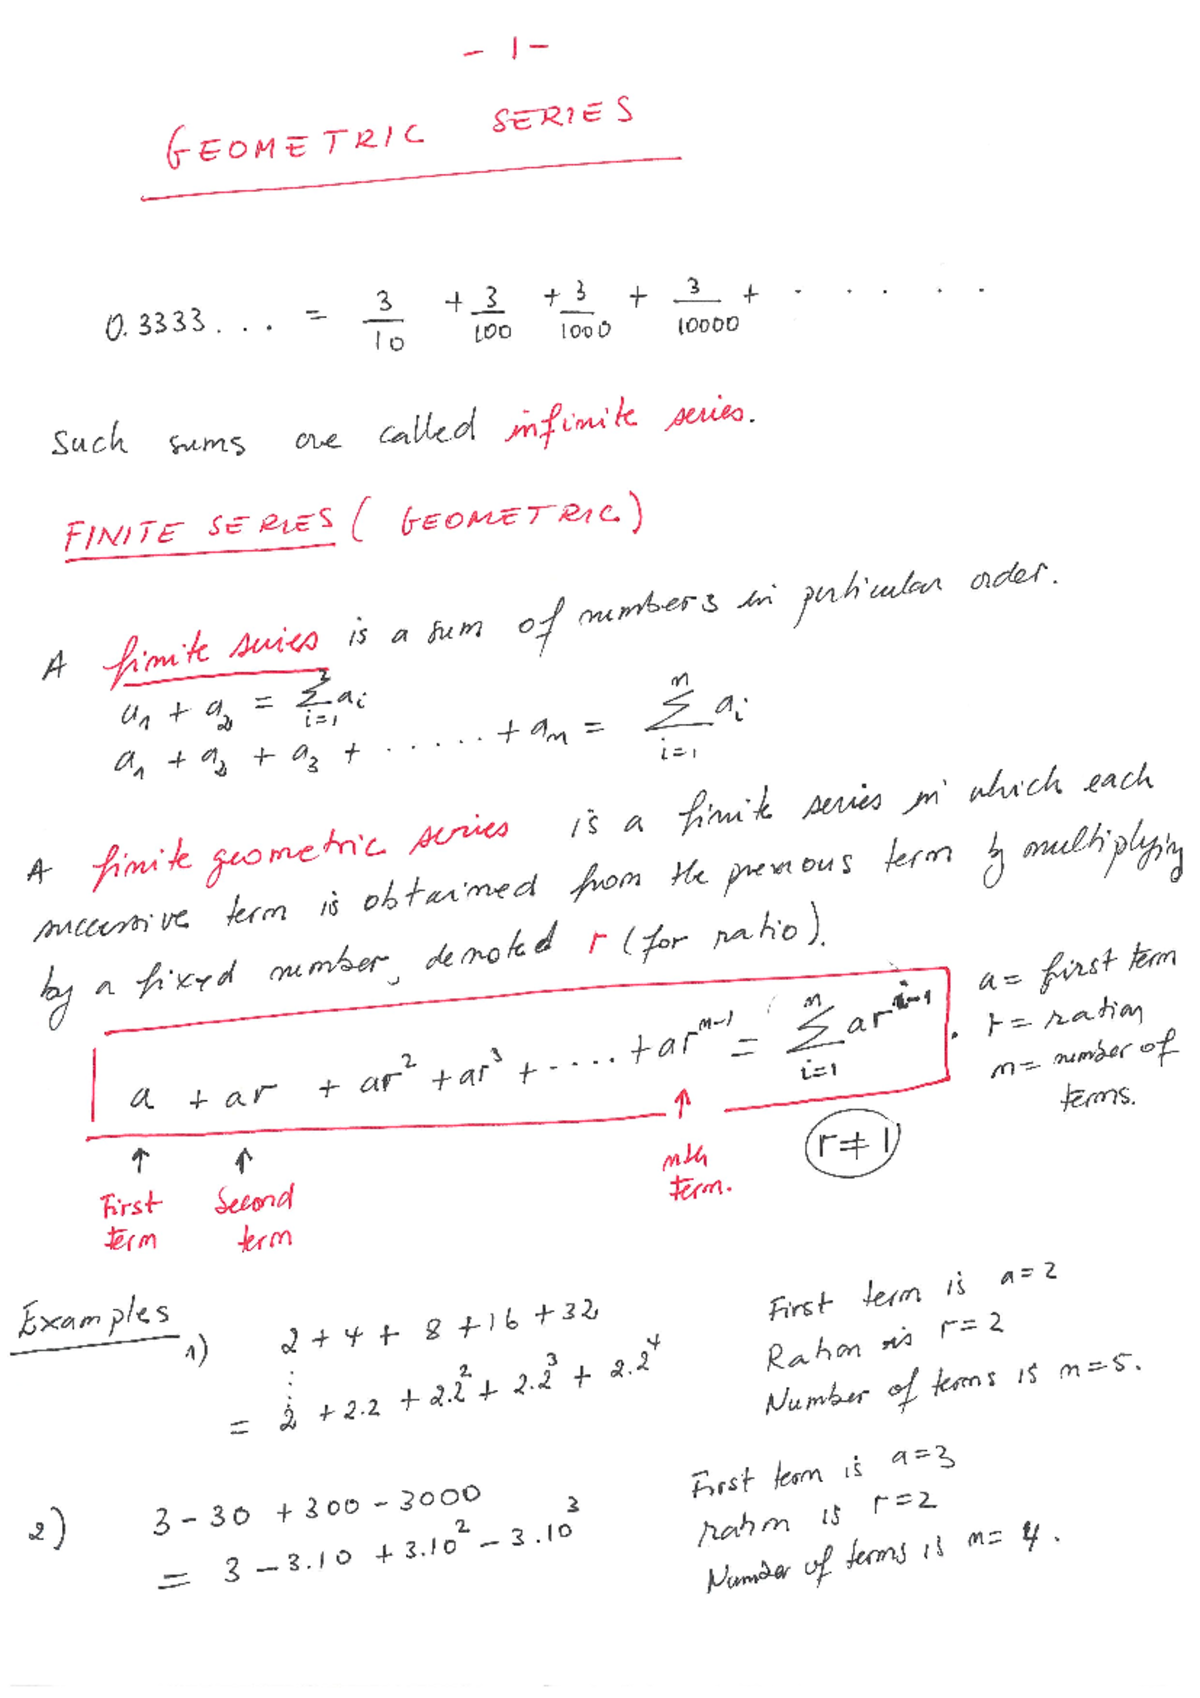 - 1 -
GEOMETRIC SERIES
0.3333... = 3/10 + 3/100 + 3/1000 + 3/10000 + . . . . .
Such sums are called infinite series.
FINITE SERIES ( GEOMETRIC )
A finite series is a sum of numbers in particular order.
a₁ + a₂ = ∑_{i=1}^{2} aᵢ
a₁ + a₂ + a₃ + ...... + aₙ = ∑_{i=1}^{n} aᵢ
A finite geometric series is a finite series in which each
successive term is obtained from the previous term by multiplying
by a fixed number, denoted r (for ratio).
a + ar + ar² + ar³ + ..... + arⁿ⁻¹ = ∑_{i=1}^{n} arⁱ⁻¹.
a = first term
r = ration
n = number of
terms.
r ≠ 1
↑ First term
↑ Second term
↑ nth term.
Examples
1) 2 + 4 + 8 + 16 + 32
= 2 + 2.2 + 2.2² + 2.2³ + 2.2⁴
First term is a = 2
Ration is r = 2
Number of terms is n = 5.
2) 3 - 30 + 300 - 3000
= 3 - 3.10 + 3.10² - 3.10³
First term is a = 3
ration is r = 2
Number of terms is n = 4.